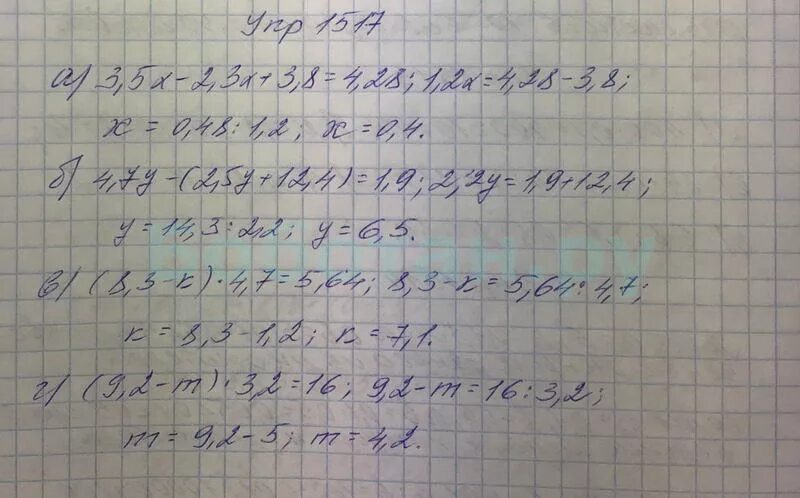 Упр 1517
а) 3,5x-2,3x+3,8=4,28; 1,2x=4,28-3,8;
x = 0,48:1,2; x=0,4.
б) 4,7y-(2,5y+12,4)=1,9; 2,2y=1,9+12,4;
y=14,3:2,2; y=6,5.
в) (8,3-к)·4,7=5,64; 8,3-к=5,64:4,7;
к=8,3-1,2; к=7,1.
г) (9,2-m)·3,2=16; 9,2-m=16:3,2;
m=9,2-5; m=4,2.